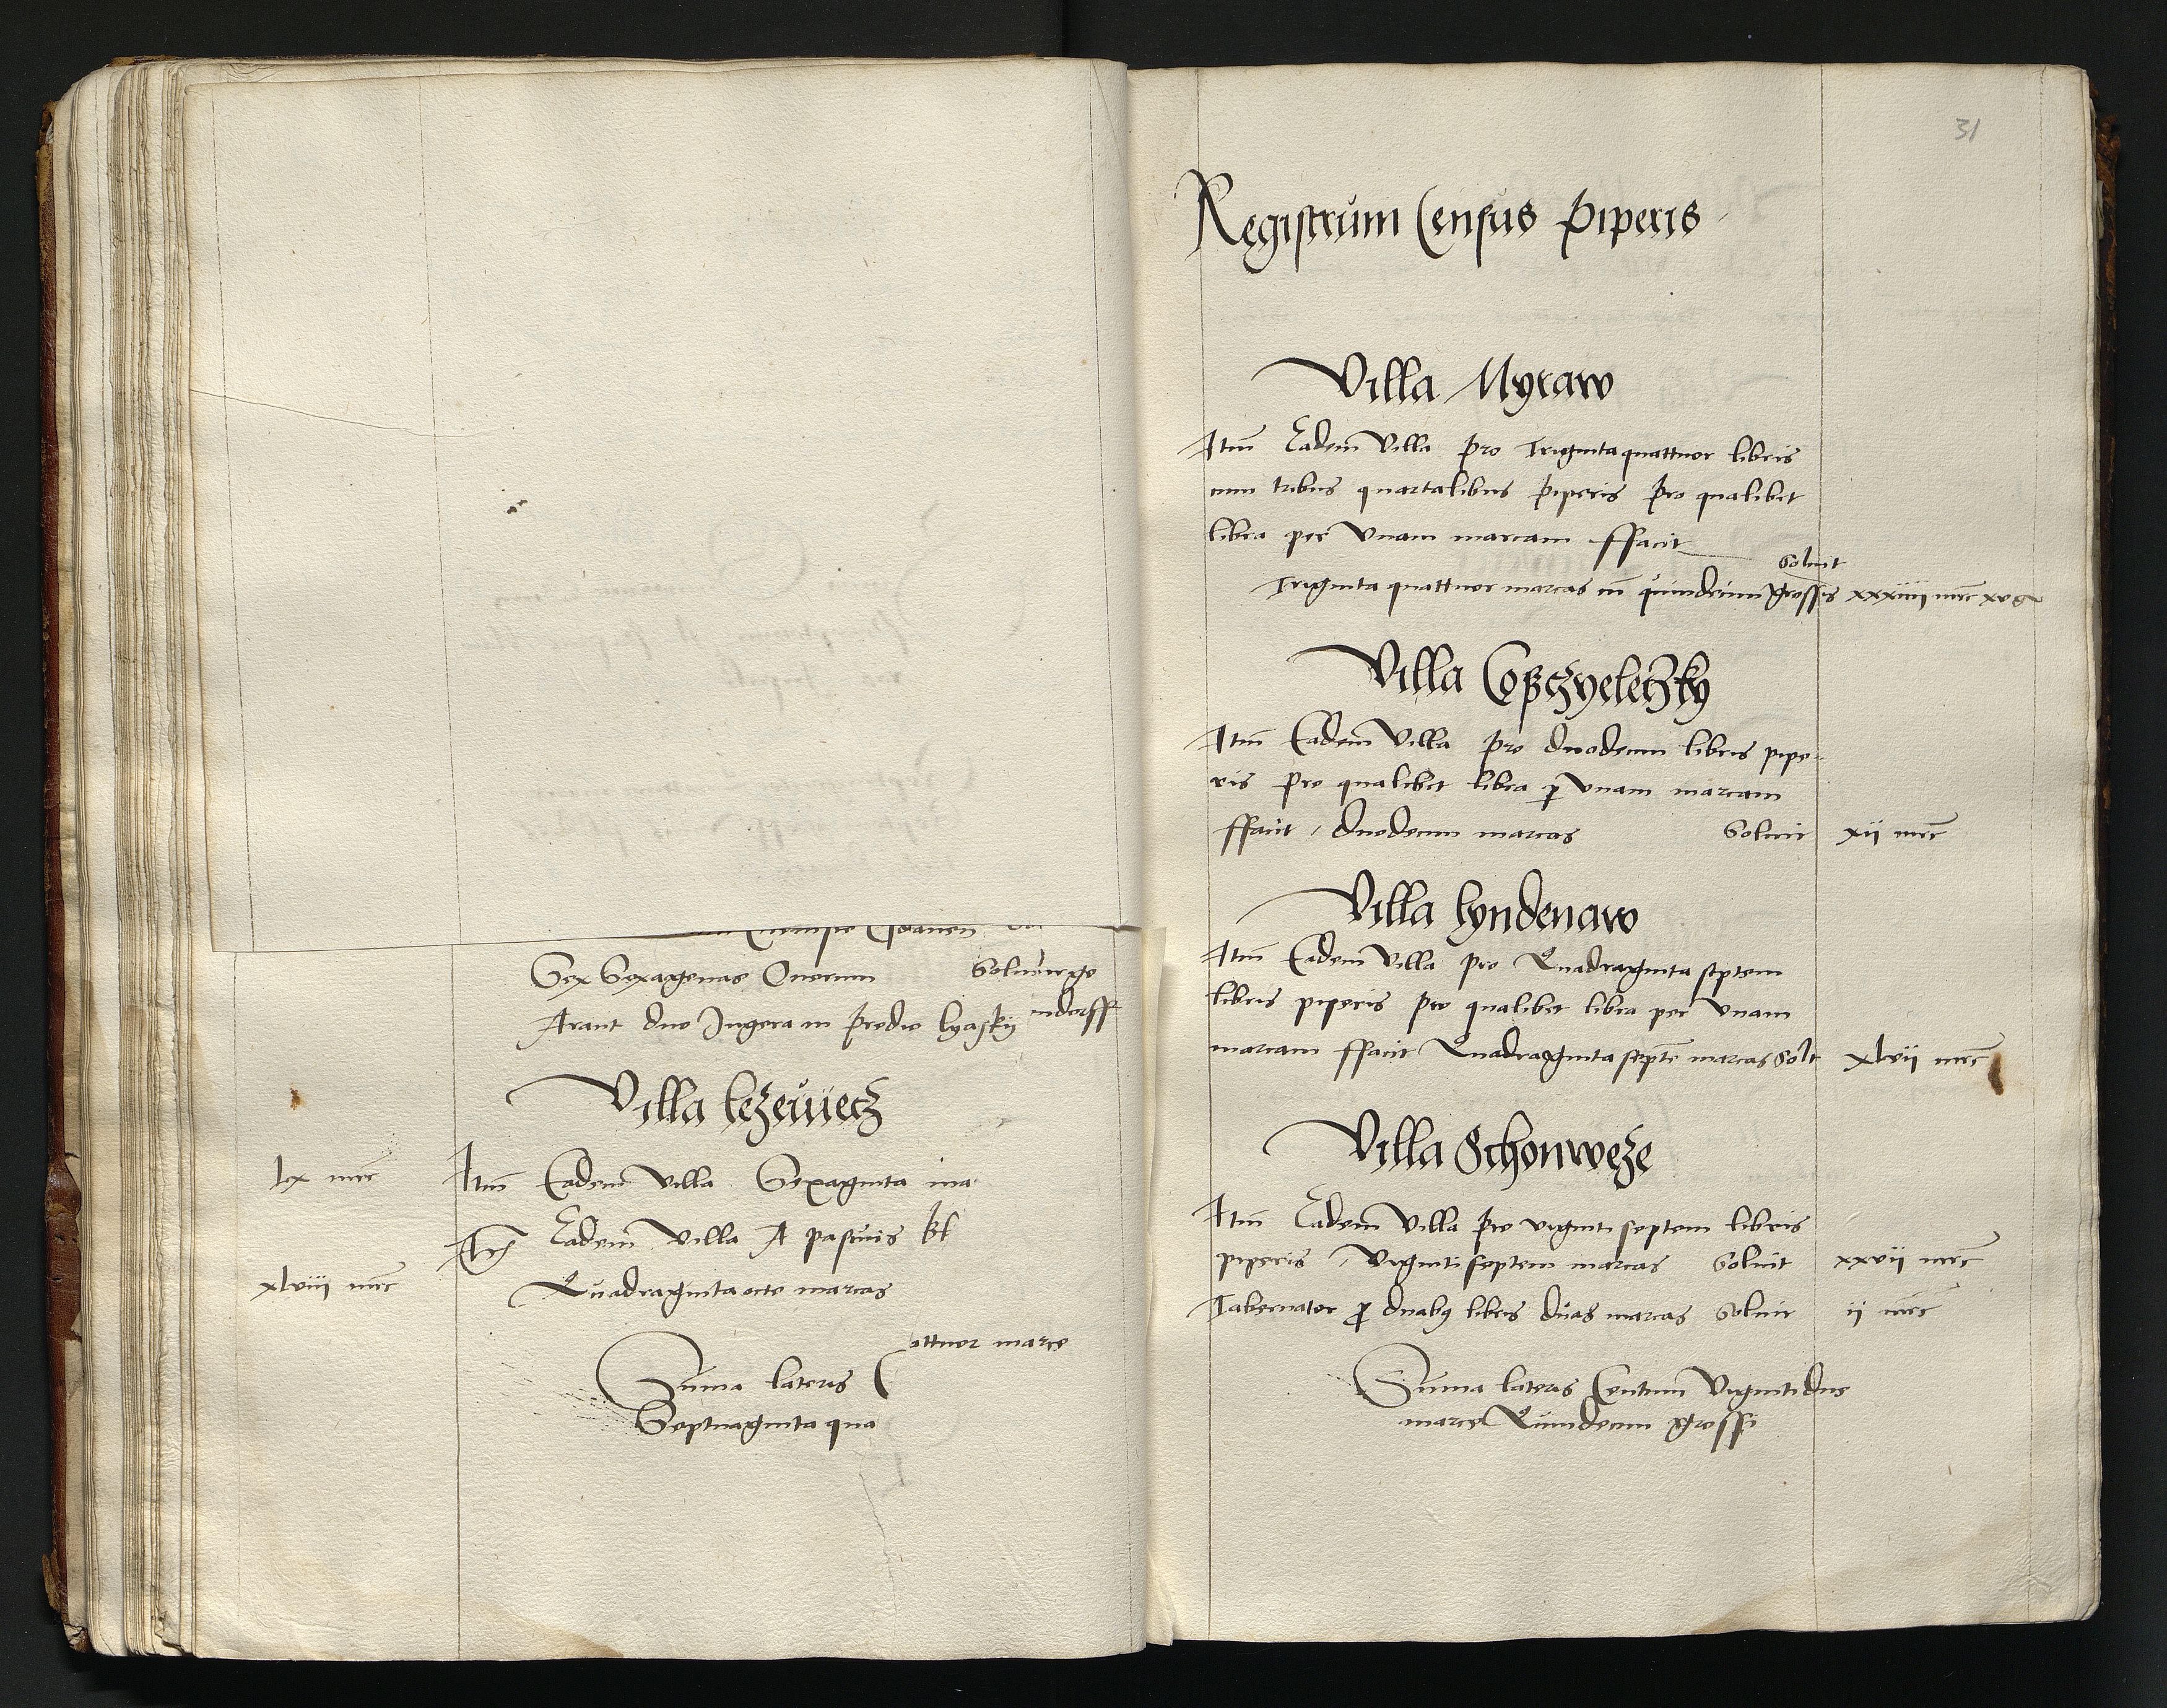 Sex Sexagenas Quorum Solu
Arant duo Jugera in predio lyasky
ndorff
Villa lezeuiecz
lx mrc Item Eadem Villa Sexaginta ma
Eadem Villa A pascuis
xlviii mrc Quadragintaocto marcas
attuor marce
Suma lateris
Septuaginta qua
31
Registrum Census piperis
Villa Myraw
Item Eadem Villa pro Trigintaquattuor libris
cum tribus quartalibus piperis pro qualibet
libra per Vnam marcam ffacit
Soluit
Triginta quattuor marcas cu quindecim grossis xxxiiii mrc xv g
Villa Coßczyeletzky
Item Eadem Villa pro duodecim libris pipe-
ris pro qualibet libra p Vnam marcam
ffacit / duodecim marcas Soluit xii mrc
Villa lyndenaw
Item Eadem Villa pro Quadraginta septem
libris piperis pro qualibet libra per Vnam
marcam ffacit Quadraginta septe marcas Solt xlvii mrc
Villa Schonweze
Item Eadem Villa pro viginti septem libris
piperis / Viginti septem marcas Soluit xxvii mrc
Tabernator p duabus libris duas marcas Soluit ii mrc
Suma lateris Centum Vigintidue
marce Quindecim grossi